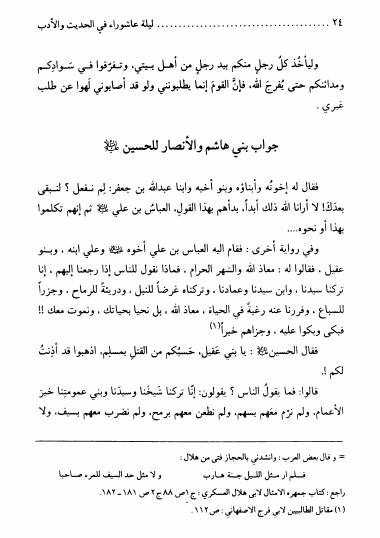 ٢٤ ........................................ ليلة عاشوراء في الحديث والأدب
وليأخُذ كلُ رجلٍ منكم بيد رجلٍ من أهـل بيـتي، وتـفرّقوا فـي سَـوادِكـم
ومدائنكم حتى يُفرجَ الله، فإنَّ القومَ إنما يطلبونني ولو قد أصابوني لَهوا عن طلب
غيري .
جواب بني هاشم والأنصار للحسين ﷺ
فقال له إخوتُه وأبناؤه وبنو أخيه وابنا عبدالله بن جعفر: لِم نـفعل ؟ لنـبقى
بعدَكَ! لا أرانا الله ذلك أبداً، بدأهم بهذا القولِ، العباسُ بن علي ثم إنهم تكلموا
بهذا أو نحوه....
وفي رواية أخرى : فقام اليه العباس بن علي أخوه وعلي ابنه ، وبـنو
عقيل ، فقالوا له : معاذ الله والشهر الحرام ، فماذا نقول للناس إذا رجعنا إليهم ، إنا
تركنا سيدنا ، وابن سيدنا وعمادنا ، وتركناه غرضاً للنبل ، ودريئةً للرماح ، وجزراً
للسباع ، وفررنا عنه رغبةً في الحياة ، معاذ الله ، بل نحيا بحياتك ، ونموت معك !!
فبكى وبكوا عليه ، وجزاهم خيراً(١)
فقال الحسين : يا بني عَقيل، حَسبُكم من القتلِ بمسلِمٍ، اذهبوا قد أذِنتُ
لكم !.
قالوا: فما يقولُ الناس ؟ يقولون: إنّا تركنا شيخَنا وسيدَنا وبني عمومتِنا خيرَ
الأعمام، ولم نرْمِ معَهم بسهم، ولم نطعن معهم برمح، ولم نضرب معهم بسيف، ولا
= و قال بعض العرب : وانشدني بالحجاز فتى من هلال :
فـلم ار مـثل الليـل جـنة هـارب و لا مثل حد السيف للمرء صاحبا
راجع : كتاب جمهره الامثال لابى هلال العسكري : ج١ص ٨٨ ج٢ ص ١٨١ ـ ١٨٢.
(١) مقاتل الطالبيين لابي فرج الاصفهاني : ص١١٢ .